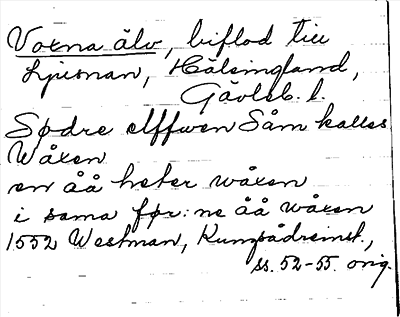 Voxna älv, biflod till
Ljusnan, Hälsingland,
Gävleb. l.
Sødre elffwen Såm kalles
Wåxen
en åå heter wåxen
i sama før: ne åå wåxen
1552 Westman, Kungsådreinst.,
ss. 52-55. orig.